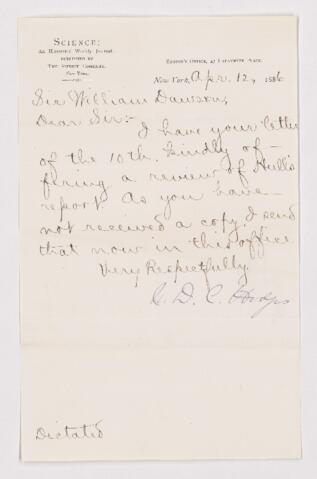 SCIENCE:
An Illustrated Weekly Journal.
PUBLISHED BY
THE SCIENCE COMPANY,
New York.
EDITOR'S OFFICE, 47 LAFAYETTE PLACE,
New York, Apr. 12, 1886
Sir William Dawson,
Dear Sir:-
I have your letter
of the 10th. Kindly of-
fering a review of Hull's
report. As you have
not received a copy, I send
that now in this office
Very Respectfully,
C. D. C. Hodges
Dictated